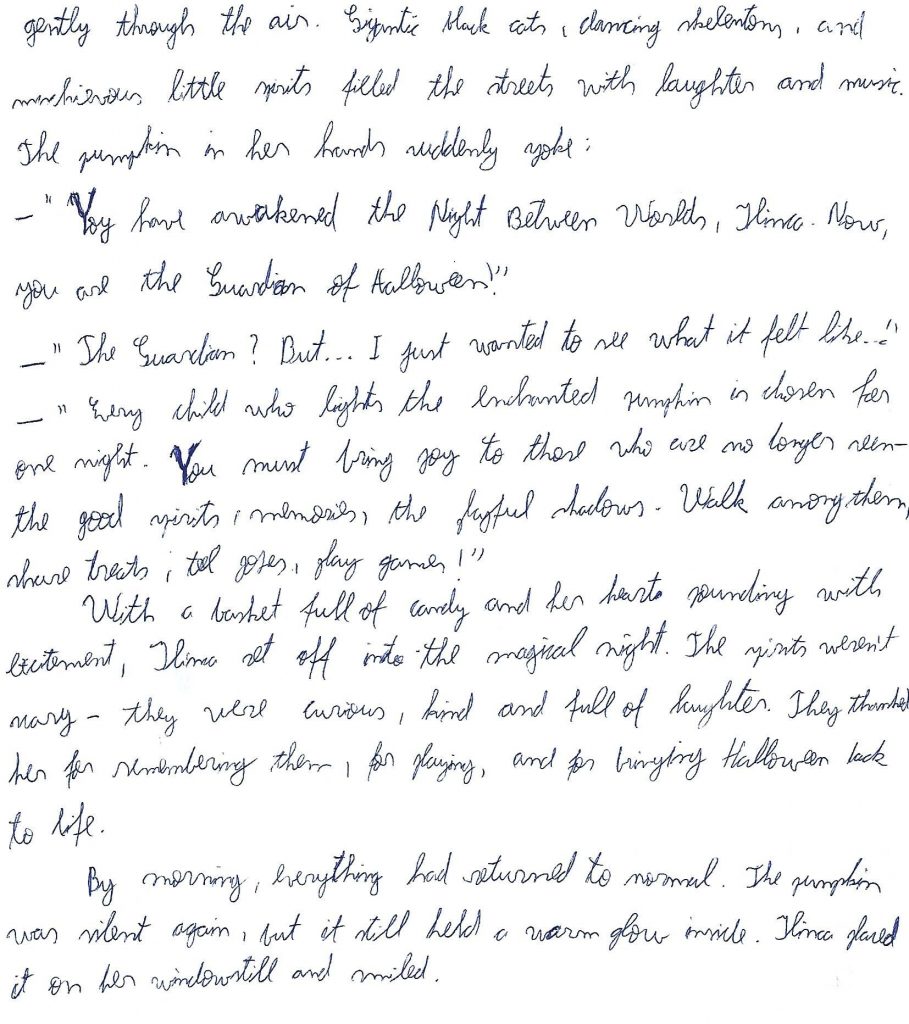 gently through the air. Gigantic black cats, dancing skeletons, and
mischievous little spirits filled the streets with laughter and music.
The pumpkin in her hands suddenly spoke:
— "You have awakened the Night Between Worlds, Ilinca. Now,
you are the Guardian of Halloween!"
— "The Guardian? But... I just wanted to see what it felt like..."
— "Every child who lights the enchanted pumpkin is chosen for
one night. You must bring joy to those who are no longer seen-
the good spirits, memories, the playful shadows. Walk among them,
share treats, tell jokes, play games!"
With a basket full of candy and her heart pounding with
excitement, Ilinca set off into the magical night. The spirits weren't
scary - they were curious, kind and full of laughter. They thanked
her for remembering them, for playing, and for bringing Halloween back
to life.
By morning, everything had returned to normal. The pumpkin
was silent again, but it still held a warm glow inside. Ilinca placed
it on her windowstill and smiled.